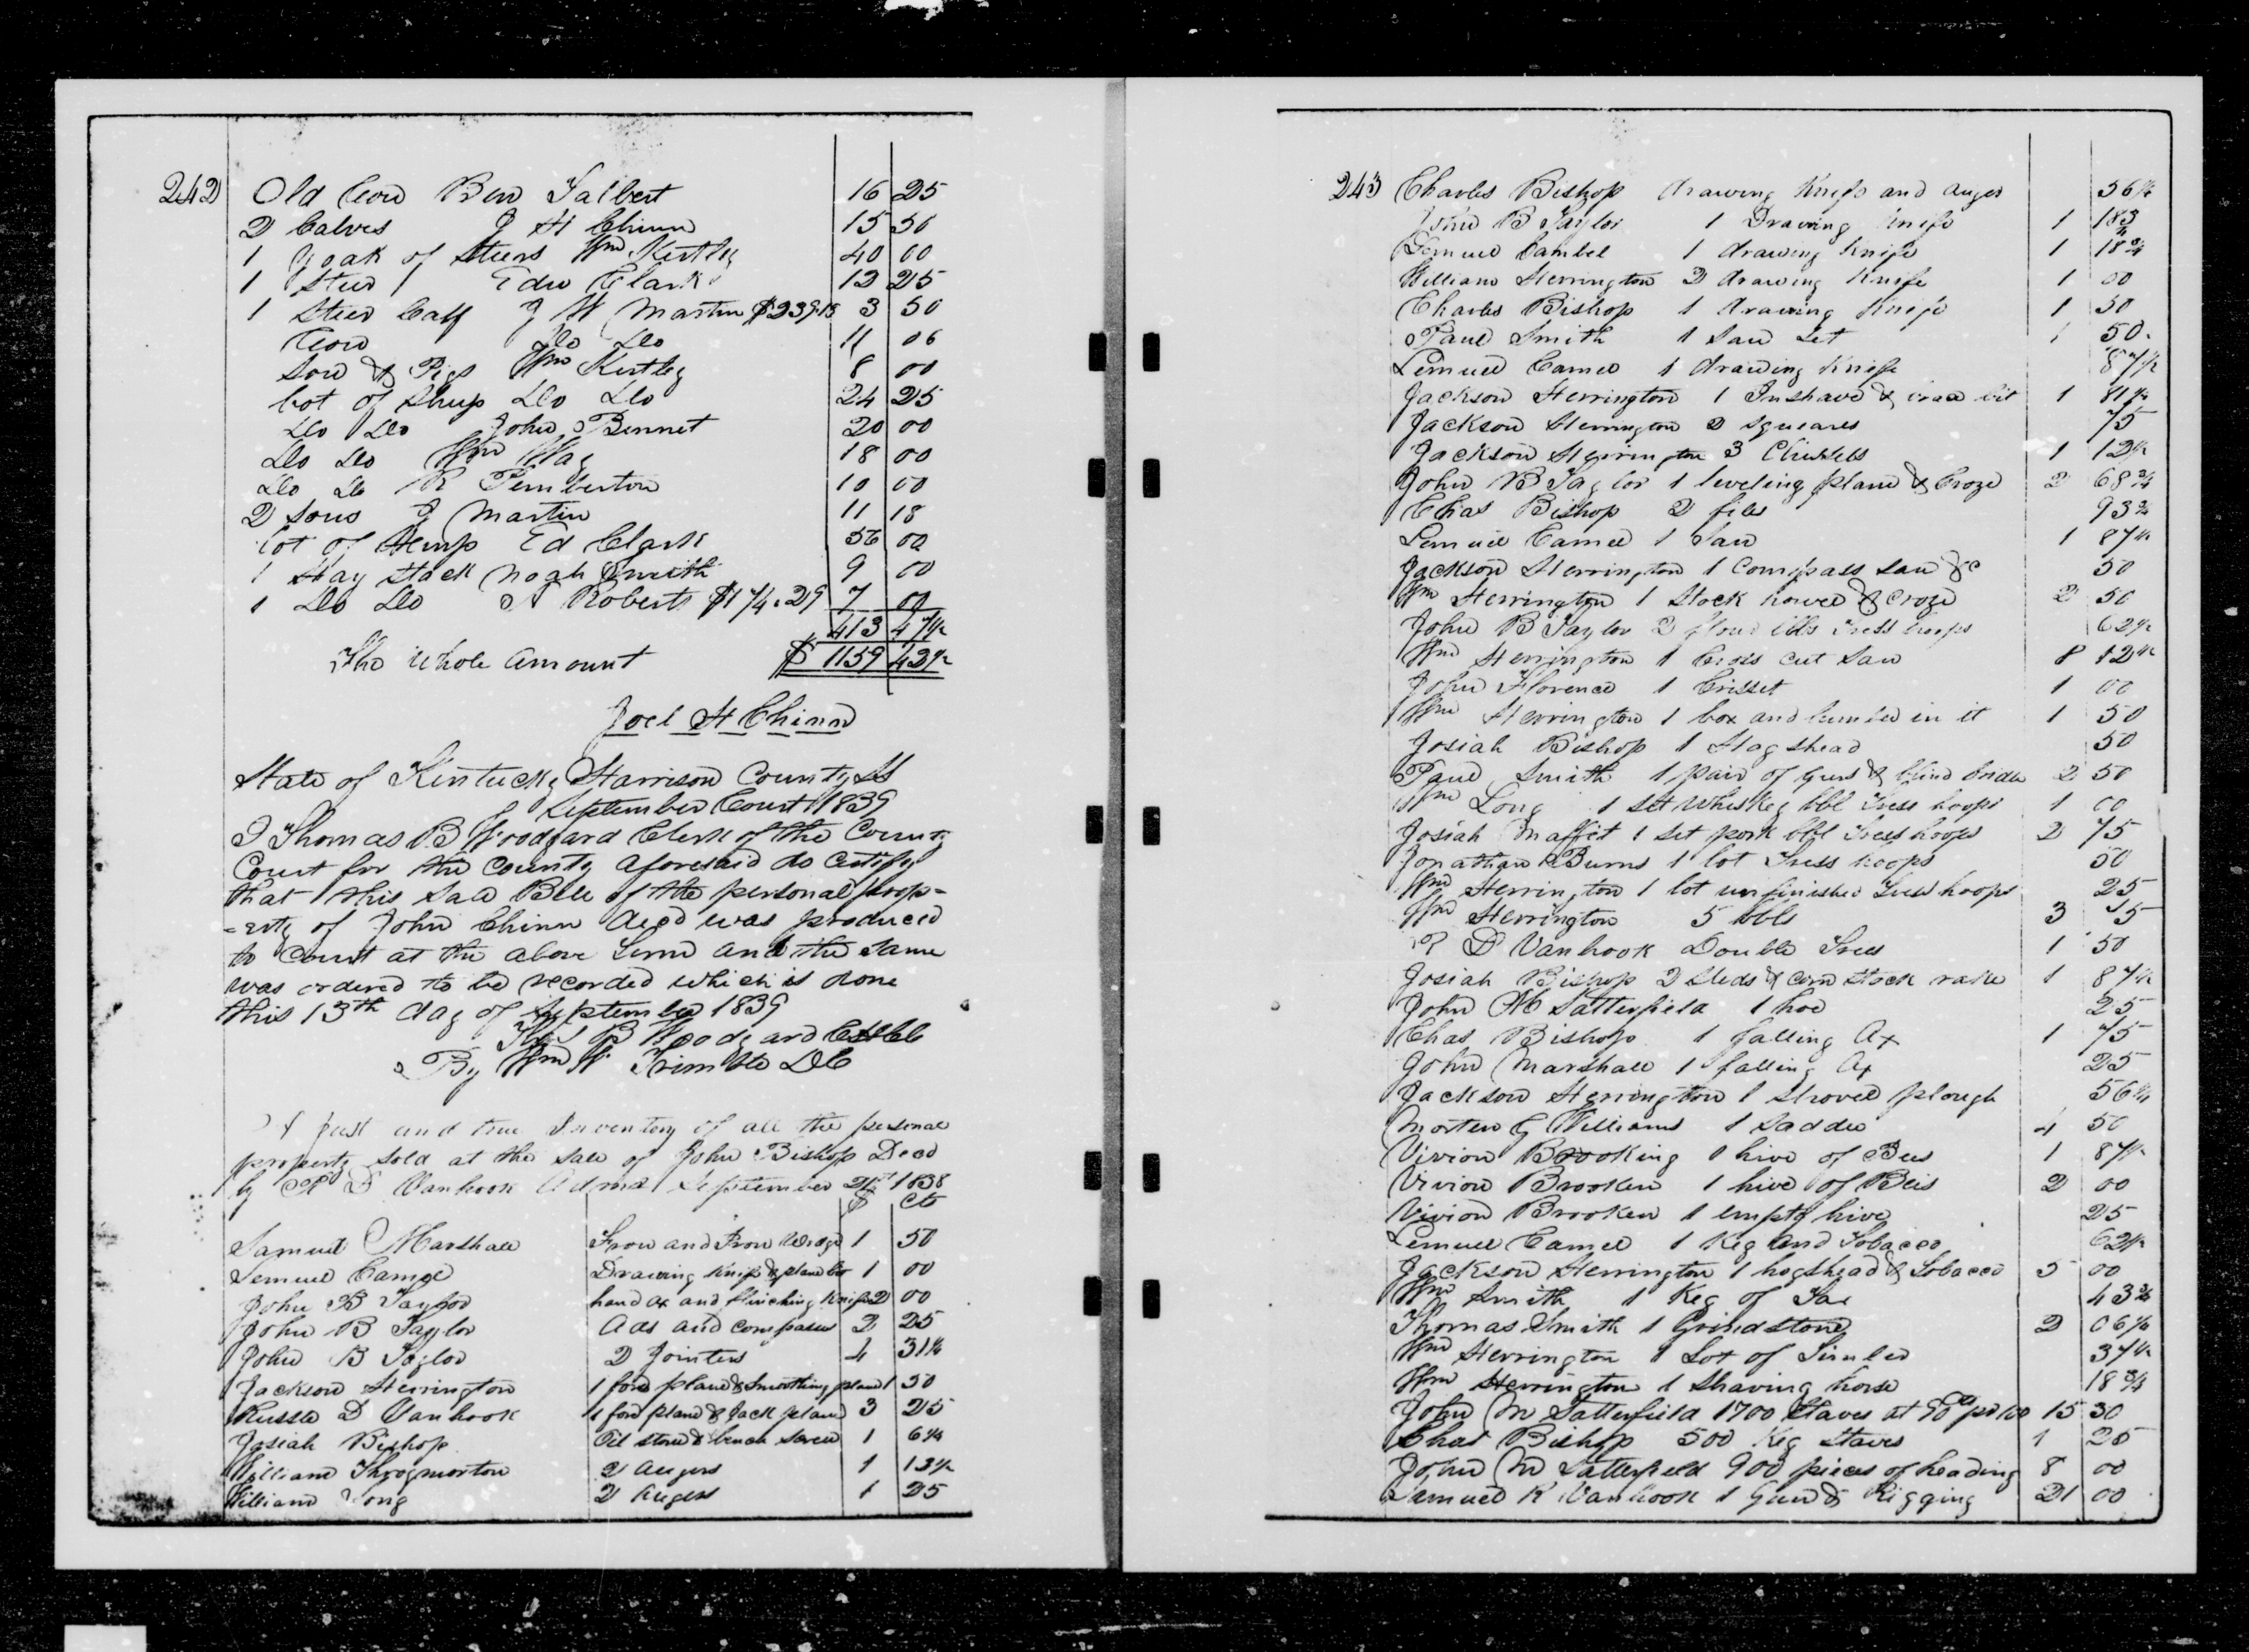 242 Old Cow Ben Talbert 16 25
2 Calves J H Chinn 15 50
1 Yoak of Steers Wm Kertley 40 00
1 Steer Edw Clark 12 25
1 Steer Calf J W Martin $239.18 3 50
Cow Do Do 11 06
Sow & Pigs Wm Kertley 8 00
Lot of Sheep Do Do 24 25
Do Do John Bennet 20 00
Do Do Wm Way 18 00
Do Do R Pemberton 10 00
2 Sows J Martin 11 18
Lot of Hemp Ed Clark 56 00
1 Hay Stack Noah Smith 9 00
1 Do Do A Roberts $174.29 7 00
413 47½
The whole Amount $ 1159 42½
Joel H Chinn
State of Kentucky Harrison County Ss
September Court 1839
I Thomas B Woodyard Clerk of the County
Court for the County aforesaid do certify
that this Sale Bill of the personal prop=
=erty of John Chinn decd was produced
to Court at the above term and the same
was ordered to be recorded which is done
this 13th day of September 1839
Thos B Woodyard
By Wm W Trimble DC
A Just and true Inventory of all the personal
property sold at the sale of John Bishop Decd
by R D Vanhook Admr September 1838
$ cts
Samuel Marshall Frow and Frow Wedge 1 50
Lemuel Camel Drawing Knife & plane bit 1 00
John B Taylor hand ax and flinching Knife 2 00
John B Taylor Ads and compasses 2 25
John B Taylor 2 Jointers 4 31¼
Jackson Herrington 1 fore plane & Smoothing plane 1 50
Russle D Vanhook 1 fore plane & Jack plane 3 25
Josiah Bishop Oil stone & bench screw 1 6¼
William Throgmorton 2 augers 1 13½
William Long 2 Augers 1 25
243 Charles Bishop drawing Knife and auger 56¼
John B Taylor 1 Drawing Knife 1 18¾
Lemuel Cambel 1 drawing Knife 1 18¾
William Herrington 2 drawing Knife 1 00
Charles Bishop 1 drawing Knife 1 50
Paul Smith 1 Saw Set 1 50
Lemuel Camel 1 drawing Knife 87½
Jackson Herrington 1 Inshave & bit 1 81¼
Jackson Herrington 2 squeares 75
Jackson Herrington 3 Chissels 1 12½
John B Taylor 1 leveling plane & Croze 2 68¾
Chas Bishop 2 files 93¾
Lemuel Camel 1 Saw 1 87½
Jackson Herrington 1 Compass saw &c 50
Wm Herrington 1 Stock howel & Croze 2 50
John B Taylor 2 flour bbls Truss hoops 62½
Wm Herrington 1 Cross cut saw 8 12½
John Florence 1 Crisset 1 00
Wm Herrington 1 box and lumber in it 1 50
Josiah Bishop 1 Hagshead 50
Paul Smith 1 pair of Gears & blind bridle 2 50
Wm Long 1 set Whiskey bbl Truss hoops 1 00
Josiah Maffit 1 set pork bbl Truss hoops 2 75
Jonathan Burns 1 lot Truss hoops 50
Wm Herrington 1 lot unfinished Truss hoops 25
Wm Herrington 5 bbls 3 75
R D Vanhook Double Tree 1 50
Josiah Bishop 2 Sleds & corn stock rake 1 87½
John M Satterfield 1 hoe 25
Chas Bishop 1 falling Ax 1 75
John Marshall 1 falling Ax 25
Jackson Herrington 1 Shovel plough 56¼
Morten G Williams 1 Saddle 4 50
Vivion Brooking 1 hive of Bees 1 87½
Vivion Brooken 1 hive of Beis 2 00
Vivion Brooken 1 empty hive 25
Lemuel Camel 1 Keg and Tobacco 62½
Jackson Herrington 1 hogshead & Tobacco 5 00
Wm Smith 1 Keg of Tar 43¾
Thomas Smith 1 Grindstone 2 06¼
Wm Herrington 1 Lot of Timber 37½
Wm Herrington 1 Shaving horse 18¾
John M Satterfield 1700 Staves at 90 pr 100 15 30
Chas Bishop 500 Keg Staves 1 25
John M Satterfield 900 pieces of heading 8 00
Samuel K Vanhook 1 Gun & Rigging 21 00